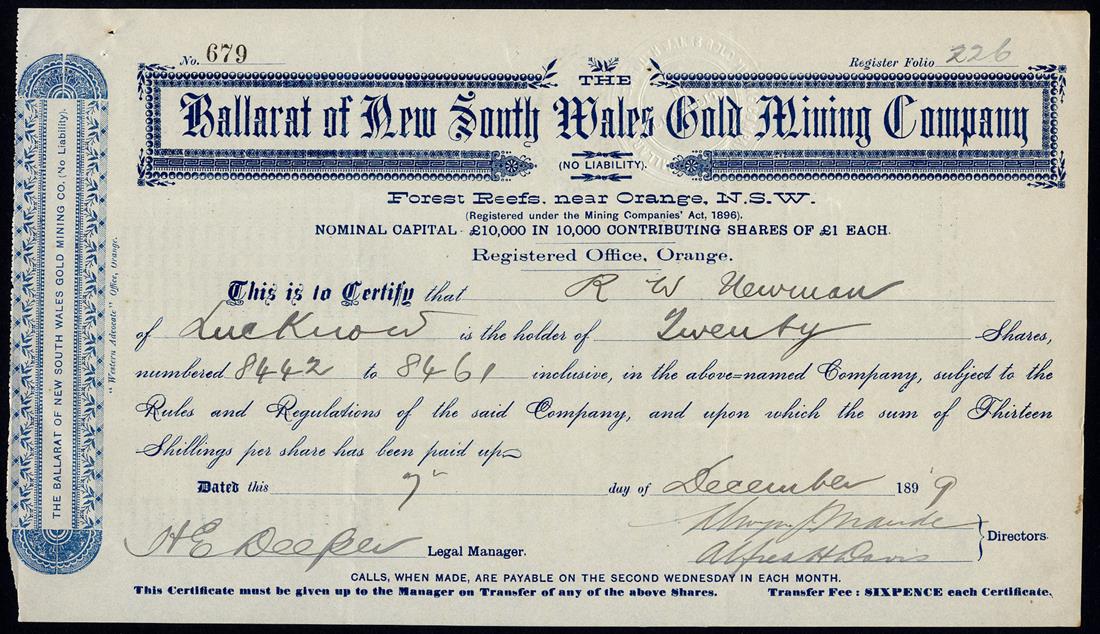 No. 679
Register Folio 226
THE
Ballarat of New South Wales Gold Mining Company
(NO LIABILITY).
Forest Reefs, near Orange, N.S.W.
(Registered under the Mining Companies' Act, 1896).
NOMINAL CAPITAL - £10,000 IN 10,000 CONTRIBUTING SHARES OF £1 EACH.
Registered Office, Orange.
This is to Certify that R W Newman
of Lucknow is the holder of Twenty Shares,
numbered 8442 to 8461 inclusive, in the above-named Company, subject to the
Rules and Regulations of the said Company, and upon which the sum of Thirteen
Shillings per share has been paid up
Dated this 7 day of December 1899
Directors.
Alfred H Davis
H E Legal Manager.
CALLS, WHEN MADE, ARE PAYABLE ON THE SECOND WEDNESDAY IN EACH MONTH.
This Certificate must be given up to the Manager on Transfer of any of the above Shares. Transfer Fee: SIXPENCE each Certificate.
THE BALLARAT OF NEW SOUTH WALES GOLD MINING CO. (No Liability).
"Western Advocate" Office, Orange.